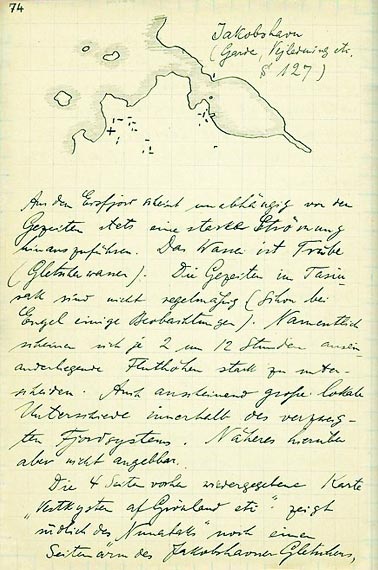 74
Jakobshavn
(Garde, Vejledning etc.
§ 127)
Aus dem Eisfjord scheint unabhängig von den
Gezeiten stets eine starke Strömung
hinauszuführen. Das Wasser ist Trübe
(Gletscherwasser). Die Gezeiten im Tasiu-
sak sind nicht regelmäßig (Schon bei
Engel einige Beobachtungen). Namentlich
scheinen sich je 2 um 12 Stunden ausein-
anderliegende Fluthöhen stark zu unter-
scheiden. Auch anscheinend große lokale
Unterschiede innerhalb des verzweig-
ten Fjordsystems. Näheres hierüber
aber nicht angebbar.
Die 4 Seiten vorher wiedergegebene Karte
„Vestkysten af Grönland etc" zeigt
südlich des „Nunataks" noch einen
Seitenarm des Jakobshavner Gletschers,